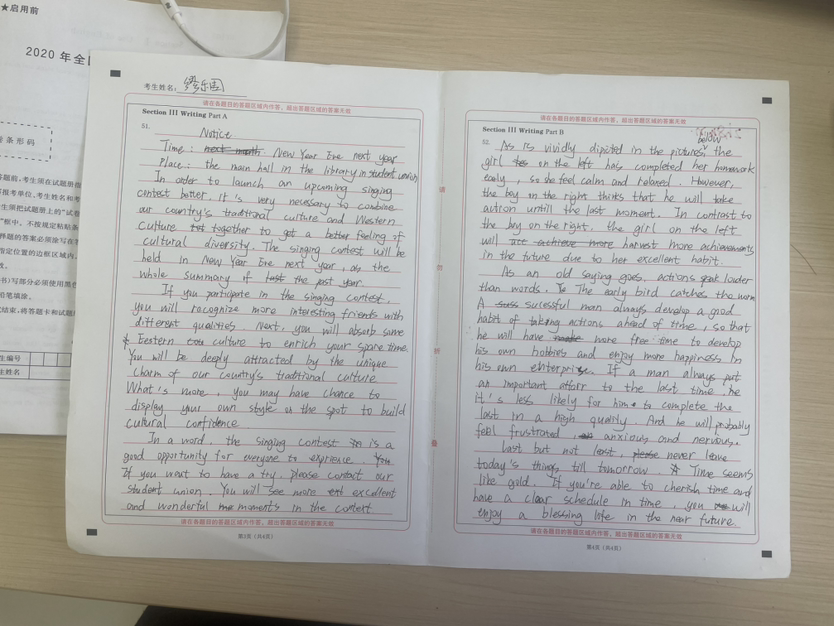 ★启用前
2020 年全
条形码
考生姓名:
请在各题目的答题区域内作答,超出答题区域的答案无效
Section III Writing Part A
51.
Notice
Time: next month New Year Eve next year
Place: the main hall in the library in student union
In order to launch an upcoming singing
contest better, it's very necessary to combine
our country's traditional culture and Western
culture together to get a better feeling of
cultural diversity. The singing contest will be
held in New Year Eve next year, as the
whole summary of last the past year.
If you participate in the singing contest,
you will recognize more interesting friends with
different qualities. Next, you will absorb some
Eestern culture to enrich your spare time.
You will be deeply attracted by the unique
charm of our country's traditional culture.
What's more, you may have chance to
display your own style on the spot to build
cultural confidence.
In a word, the singing contest is a
good opportunity for everyone to exprience. You
If you want to have a try, please contact our
student union. You will see more excellent
and wonderful moments in the contest
请在各题目的答题区域内作答,超出答题区域的答案无效
第3页(共4页)
请在各题目的答题区域内作答,超出答题区域的答案无效
Section III Writing Part B
52.
As is vividly dipicted in the pictures below, the
girl on the left has completed her homework
early, so she feel calm and relaxed. However,
the boy on the right thinks that he will take
action untill the last moment. In contrast to
the boy on the right, the girl on the left
will achieve more harvest more achievements
in the future due to her excellent habit.
As an old saying goes, actions speak louder
than words. The early bird catches the worm
A sucessful man always develop a good
habit of taking actions ahead of time, so that
he will have more free time to develop
his own hobbies and enjoy more happiness in
his own enterprise. If a man always put
an important affair to the last time, he
it's less likely for him to complete the
last in a high quality. And he will probably
feel frustrated, anxious and nervous.
Last but not least, please never leave
today's things till tomorrow. Time seems
like gold. If you're able to cherish time and
have a clear schedule in time, you will
enjoy a blessing life in the near future.
请在各题目的答题区域内作答,超出答题区域的答案无效
第4页(共4页)